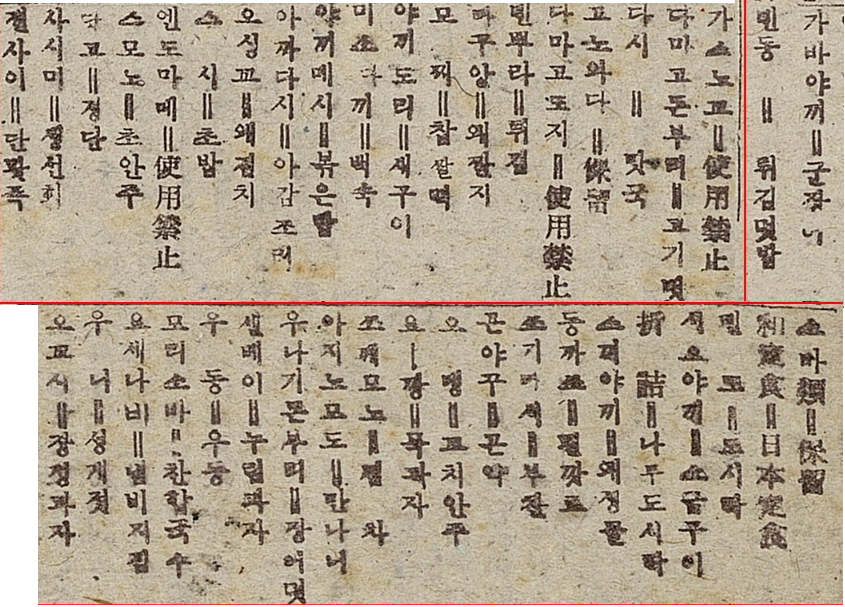 가바야끼＝군장어
덴동＝튀김덮밥
가스노꼬＝使用禁止
다마고돈부리＝고기덮
다시＝맛국
고노와다＝保留
다마고도지＝使用禁止
덴뿌라＝튀김
다꾸앙＝왜짠지
모찌＝찹쌀떡
야끼도리＝새구이
미소다끼＝백숙
야끼메시＝볶은밥
아까다시＝
오싱꼬＝왜김치
스시＝초밥
엔도마메＝使用禁止
스모노＝초안주
다고＝경단
사시미＝생선회
젠사이＝단팥죽
소바類＝保留
和定食＝日本定食
벤또＝도시락
시오야끼＝소금구이
折詰＝나무도시락
스끼야끼＝왜전골
동까쓰＝
쯔기다세＝부찬
곤야꾸＝곤약
오뎅＝꼬치안주
요ー깡＝묵과자
쯔께모노＝
아지노모도＝만나니
우나기돈부리＝장어덮
셈베이＝누림과자
우동＝우동
모리소바＝찬합국수
요세나비＝냄비지짐
우니＝성게젓
오꼬시＝강정과자